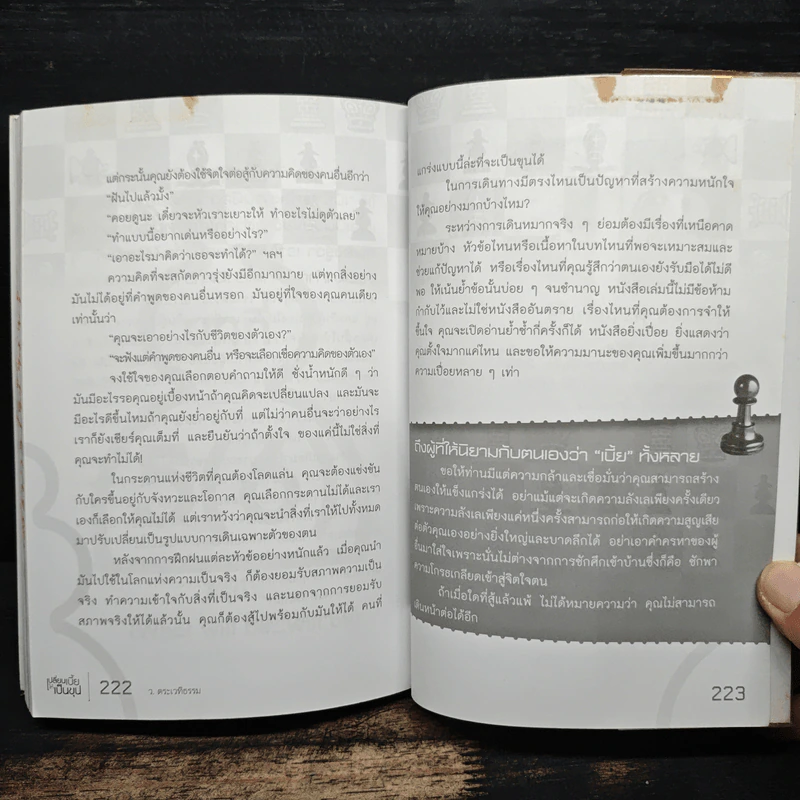 แต่กระนั้นคุณยังต้องใช้จิตใจต่อสู้กับความคิดของคนอื่นอีกว่า
“ฝันไปแล้วมั้ง”
“คอยดูนะ เดี๋ยวจะหัวเราะเยาะให้ ทำอะไรไม่ดูตัวเลย”
“ทำแบบนี้อยากเด่นหรืออย่างไร?”
“เอาอะไรมาคิดว่าเธอจะทำได้?” ฯลฯ
ความคิดที่จะสกัดดาวรุ่งยังมีอีกมากมาย แต่ทุกสิ่งอย่าง
มันไม่ได้อยู่ที่คำพูดของคนอื่นหรอก มันอยู่ที่ใจของคุณคนเดียว
เท่านั้นว่า
“คุณจะเอาอย่างไรกับชีวิตของตัวเอง?”
“จะฟังแต่คำพูดของคนอื่น หรือจะเลือกเชื่อความคิดของตัวเอง”
จงใช้ใจของคุณเลือกตอบคำถามให้ดี ชั่งน้ำหนักดี ๆ ว่า
มันมีอะไรรอคุณอยู่เบื้องหน้าถ้าคุณคิดจะเปลี่ยนแปลง และมันจะ
มีอะไรดีขึ้นไหมถ้าคุณยังย่ำอยู่กับที่ แต่ไม่ว่าคนอื่นจะว่าอย่างไร
เราก็ยังเชียร์คุณเต็มที่ และยืนยันว่าถ้าตั้งใจ ของแค่นี้ไม่ใช่สิ่งที่
คุณจะทำไม่ได้!
ในกระดานแห่งชีวิตที่คุณต้องโลดแล่น คุณจะต้องแข่งขัน
กับใครขึ้นอยู่กับจังหวะและโอกาส คุณเลือกกระดานไม่ได้และเรา
เองก็เลือกให้คุณไม่ได้ แต่เราหวังว่าคุณจะนำสิ่งที่เราให้ไปทั้งหมด
มาปรับเปลี่ยนเป็นรูปแบบการเดินเฉพาะตัวของตน
หลังจากการฝึกฝนแต่ละหัวข้ออย่างหนักแล้ว เมื่อคุณนำ
มันไปใช้ในโลกแห่งความเป็นจริง ก็ต้องยอมรับสภาพความเป็น
จริง ทำความเข้าใจกับสิ่งที่เป็นจริง และนอกจากการยอมรับ
สภาพจริงให้ได้แล้วนั้น คุณก็ต้องสู้ไปพร้อมกับมันให้ได้ คนที่
เปลี่ยนเบี้ย
เป็นขุน
222
ว. ตระเวทีธรรม
แกร่งแบบนี้ล่ะที่จะเป็นขุนได้
ในการเดินทางมีตรงไหนเป็นปัญหาที่สร้างความหนักใจ
ให้คุณอย่างมากบ้างไหม?
ระหว่างการเดินหมากจริง ๆ ย่อมต้องมีเรื่องที่เหนือคาด
หมายบ้าง หัวข้อไหนหรือเนื้อหาในบทไหนที่พอจะเหมาะสมและ
ช่วยแก้ปัญหาได้ หรือเรื่องไหนที่คุณรู้สึกว่าตนเองยังรับมือได้ไม่ดี
พอ ให้เน้นย้ำข้อนั้นบ่อย ๆ จนชำนาญ หนังสือเล่มนี้ไม่มีข้อห้าม
กำกับไว้และไม่ใช่หนังสืออันตราย เรื่องไหนที่คุณต้องการจำให้
ขึ้นใจ คุณจะเปิดอ่านย้ำซ้ำกี่ครั้งก็ได้ หนังสือยิ่งเปื่อย ยิ่งแสดงว่า
คุณตั้งใจมากแค่ไหน และขอให้ความมานะของคุณเพิ่มขึ้นมากกว่า
ความเปื่อยหลาย ๆ เท่า
ถึงผู้ที่ให้นิยามกับตนเองว่า “เบี้ย” ทั้งหลาย
ขอให้ท่านมีแต่ความกล้าและเชื่อมั่นว่าคุณสามารถสร้าง
ตนเองให้แข็งแกร่งได้ อย่าแม้แต่จะเกิดความลังเลเพียงครั้งเดียว
เพราะความลังเลเพียงแค่หนึ่งครั้งสามารถก่อให้เกิดความสูญเสีย
ต่อตัวคุณเองอย่างยิ่งใหญ่และบาดลึกได้ อย่าเอาคำครหาของผู้
อื่นมาใส่ใจเพราะนั่นไม่ต่างจากการชักศึกเข้าบ้านซึ่งก็คือ ชักพา
ความโกรธเกลียดเข้าสู่จิตใจตน
ถ้าเมื่อใดที่สู้แล้วแพ้ ไม่ได้หมายความว่า คุณไม่สามารถ
เดินหน้าต่อได้อีก
223